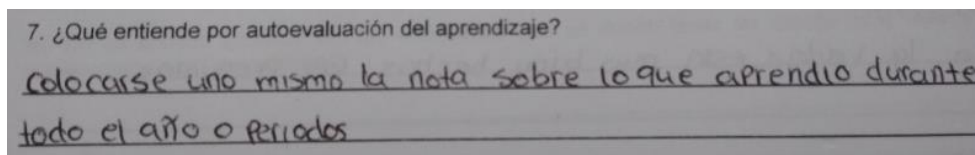 7. ¿Qué entiende por autoevaluación del aprendizaje?
colocarse uno mismo la nota sobre lo que aprendio durante
todo el año o periodos